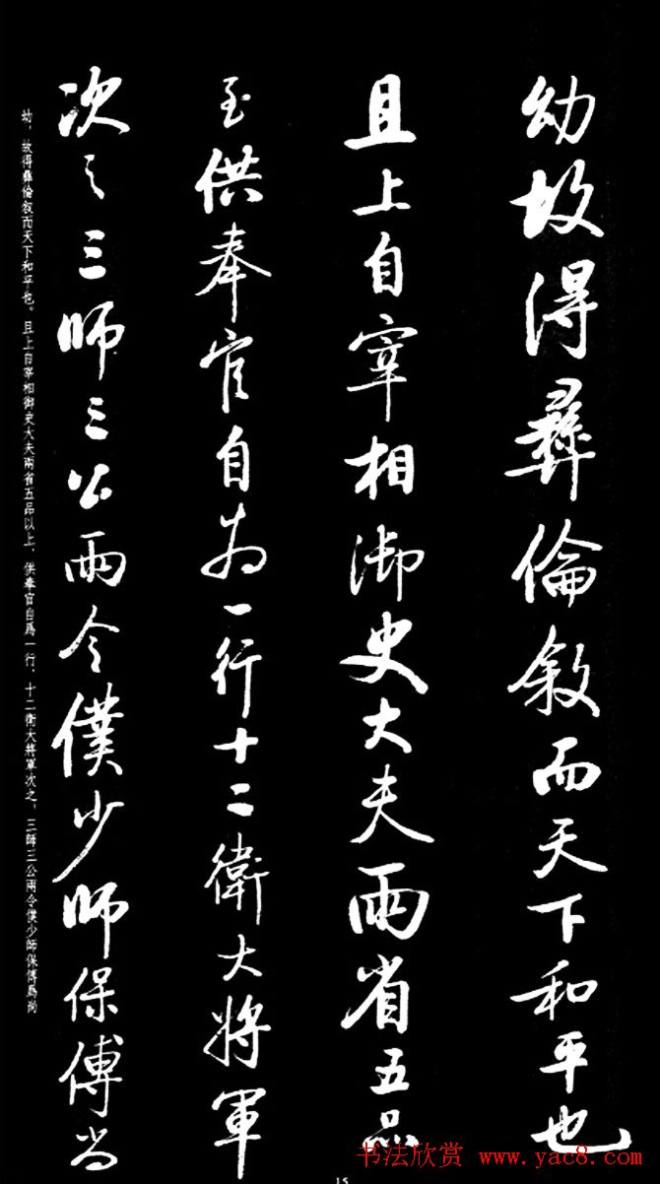 幼故得彝倫敘而天下和平也
且上自宰相御史大夫兩省五品
至供奉官自為一行十二衛大將軍
次之三師三公兩令僕少師保傅尚
幼，故得彝倫叙而天下和平也。且上自宰相御史大夫兩省五品以上，供奉官自爲一行，十二衛大將軍次之，三師三公兩令僕少師保傅爲尚
15
书法欣赏 www.yac8.com